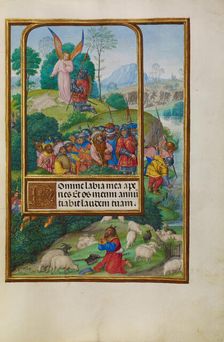 Domine labia mea ape
ries Et os meum annū
tiabit laudem tuam.